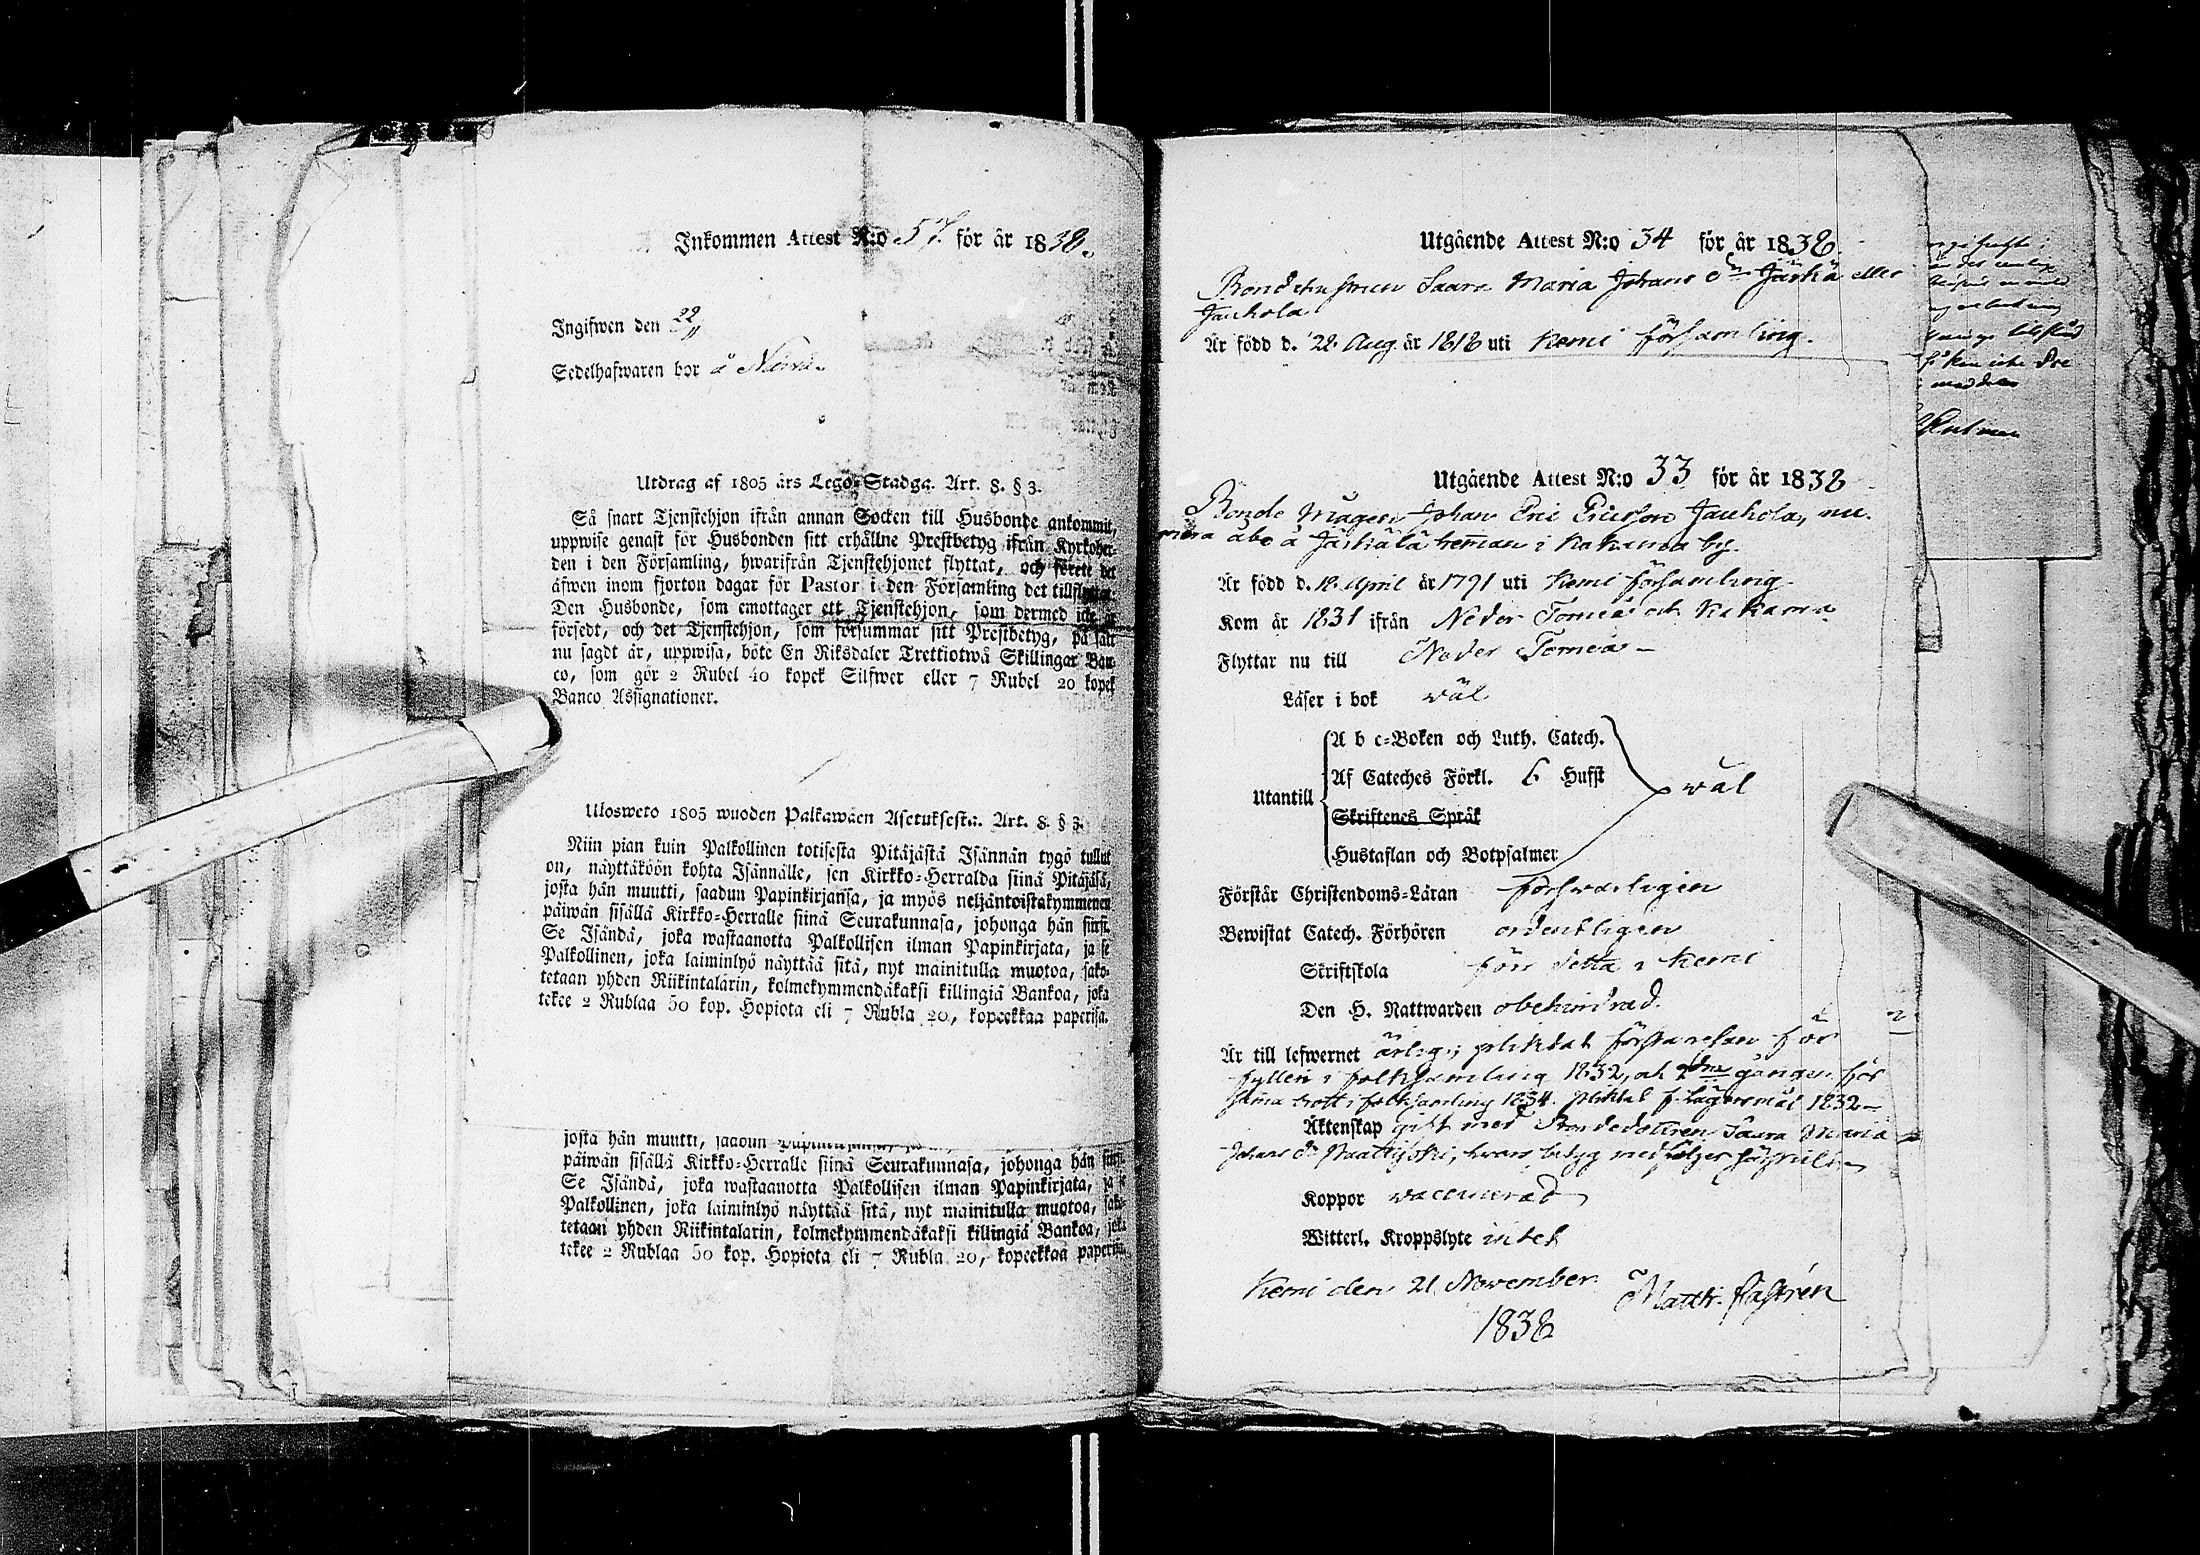 Inkommen Attest N:o 57. för år 1838.
Ingifwen den 22/11
Sedelhafwaren bor å
Utdrag af 1805 års Lego-Stadga. Art. 8. § 3.
Så snart Tjenstehjon ifrån annan Socken till Husbonde ankommit,
uppwise genast för Husbonden sitt erhållne Prestbetyg ifrån Kyrkoher-
den i den Församling, hwarifrån Tjenstehjonet flyttat, och förete det
äfwen inom fjorton dagar för Pastor i den Församling det tillflyttar.
Den Husbonde, som emottager ett Tjenstehjon, som dermed icke är
försedt, och det Tjenstehjon, som försummar sitt Prestbetyg, på sätt
nu sagdt är, uppwisa, böte En Riksdaler Trettiotwå Skillingar Ban-
co, som gör 2 Rubel 40 kopek Silfwer eller 7 Rubel 20 kopek
Banco Assignationer.
Ulosweto 1805 wuoden Palkawäen Asetuksesta. Art. 8. § 3.
Niin pian kuin Palkollinen totisesta Pitäjästä Isännän tygö tullut
on, näyttäköön kohta Isännälle, sen Kirkko-Herralda siinä Pitäjäsä,
josta hän muutti, saadun Papinkirjansa, ja myös neljäntoistakymmenen
päiwän sisällä Kirkko-Herralle siinä Seurakunnasa, johonga hän siirsi.
Se Isändä, joka wastaanotta Palkollisen ilman Papinkirjata, ja se
Palkollinen, joka laiminlyö näyttää sitä, nyt mainitulla muotoa, sako-
tetaan yhden Riikintalarin, kolmekymmendäkaksi killingiä Bankoa, joka
tekee 2 Rublaa 50 kop. Hopiota eli 7 Rubla 20, kopeekkaa paperisa.
josta hän muutti, saadun
päiwän sisällä Kirkko-Herralle siinä Seurakunnasa, johonga hän siirsi.
Se Isändä, joka wastaanotta Palkollisen ilman Papinkirjata, ja se
Palkollinen, joka laiminlyö näyttää sitä, nyt mainitulla muotoa, sako-
tetaan yhden Riikintalarin, kolmekymmendäkaksi killingiä Bankoa, joka
tekee 2 Rublaa 50 kop. Hopiota eli 7 Rubla 20, kopeekkaa paperisa.
Utgående Attest N:o 34 för år 1838.
Bondehustrun Saara Maria Johans dr Järkä eller
Jauhola
Är född d. 22 Aug. år 1818 uti Kemi församling.
Utgående Attest N:o 33 för år 1838
Bonde Mågen Johan Eric Ericsson Jauhola, nu-
mera åbo å hemman i Kakama by.
Är född d. 18. April år 1791 uti Kemi församling.
Kom år 1831 ifrån Neder Torneå och Kakama
Flyttar nu till Neder Torneå
Läser i bok wäl
A b c-Boken och Luth. Catech.
Af Cateches Förkl. 6 Hufst
Utantill wäl
Skriftenes Språk
Hustaflan och Botpsalmer
Förstår Christendoms-Läran förswarligen
Bewistat Catech. Förhören ordentligen
Skriftskola förr detta i Kemi
Den H. Nattwarden obehindrad.
Är till lefwernet ärlig; pliktat för
fylleri i folksamling 1832, och 2dra gången för
sama brott i folksamling 1834. pliktat f. lägersmål 1832
Äktenskap gift med Bondedottren Saara Maria
Johans dr hwars betyg medföljer
Koppor waccinerad
Witterl. Kroppslyte intet
Kemi den 21 November
1838
Matth. Castrén